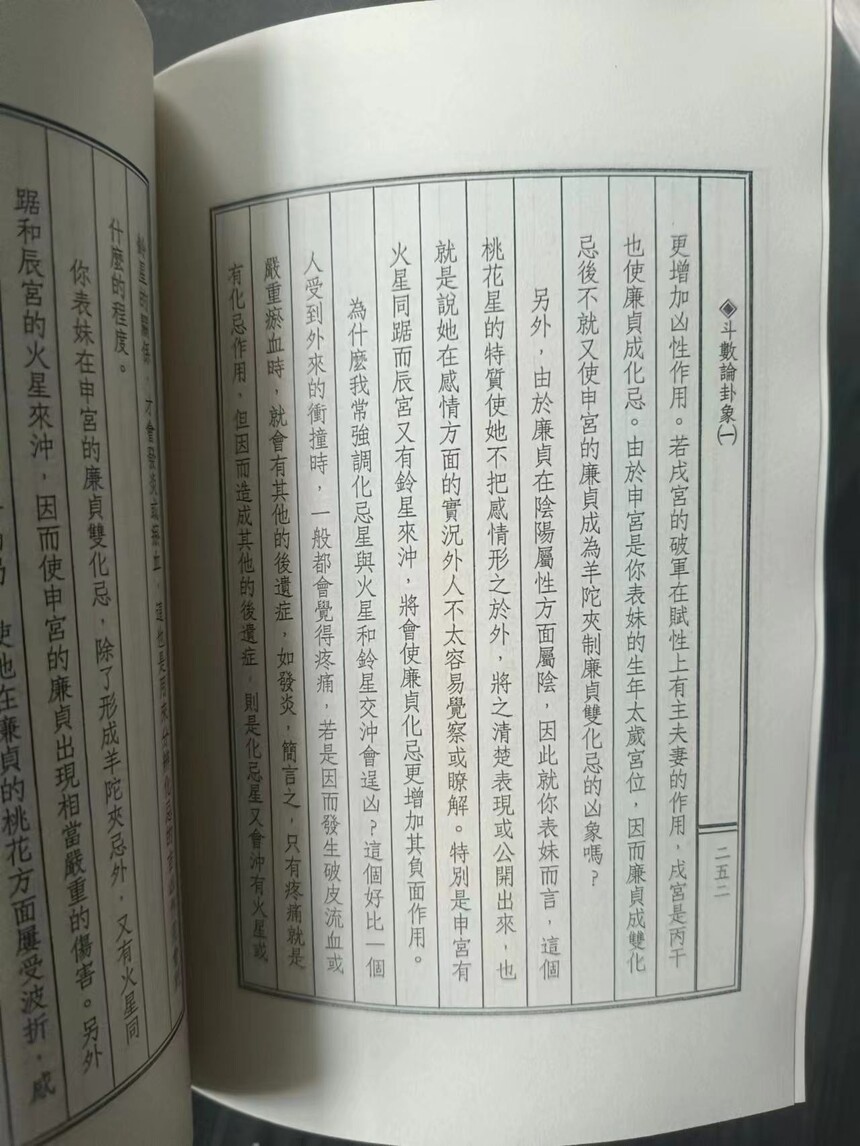 ◈斗數論卦象㈠
二五二
更增加凶性作用。若戌宮的破軍在賦性上有主夫妻的作用，戌宮是丙干
也使廉貞成化忌。由於申宮是你表妹的生年太歲宮位，因而廉貞成雙化
忌後不就又使申宮的廉貞成為羊陀夾制廉貞雙化忌的凶象嗎？
另外，由於廉貞在陰陽屬性方面屬陰，因此就你表妹而言，這個
桃花星的特質使她不把感情形之於外，將之清楚表現或公開出來，也
就是說她在感情方面的實況外人不太容易覺察或瞭解。特別是申宮有
火星同踞而辰宮又有鈴星來沖，將會使廉貞化忌更增加其負面作用。
為什麼我常強調化忌星與火星和鈴星交沖會逞凶？這個好比一個
人受到外來的衝撞時，一般都會覺得疼痛，若是因而發生破皮流血或
嚴重瘀血時，就會有其他的後遺症，如發炎，簡言之，只有疼痛就是
有化忌作用，但因而造成其他的後遺症，則是化忌星又會沖有火星或
鈴星的關係，才會發炎或瘀血，這也是用來分辨化忌
什麼的程度。
你表妹在申宮的廉貞雙化忌，除了形成羊陀夾忌外，又有火星同
踞和辰宮的火星來沖，因而使申宮的廉貞出現相當嚴重的傷害。另外
使她在廉貞的桃花方面屢受波折，感